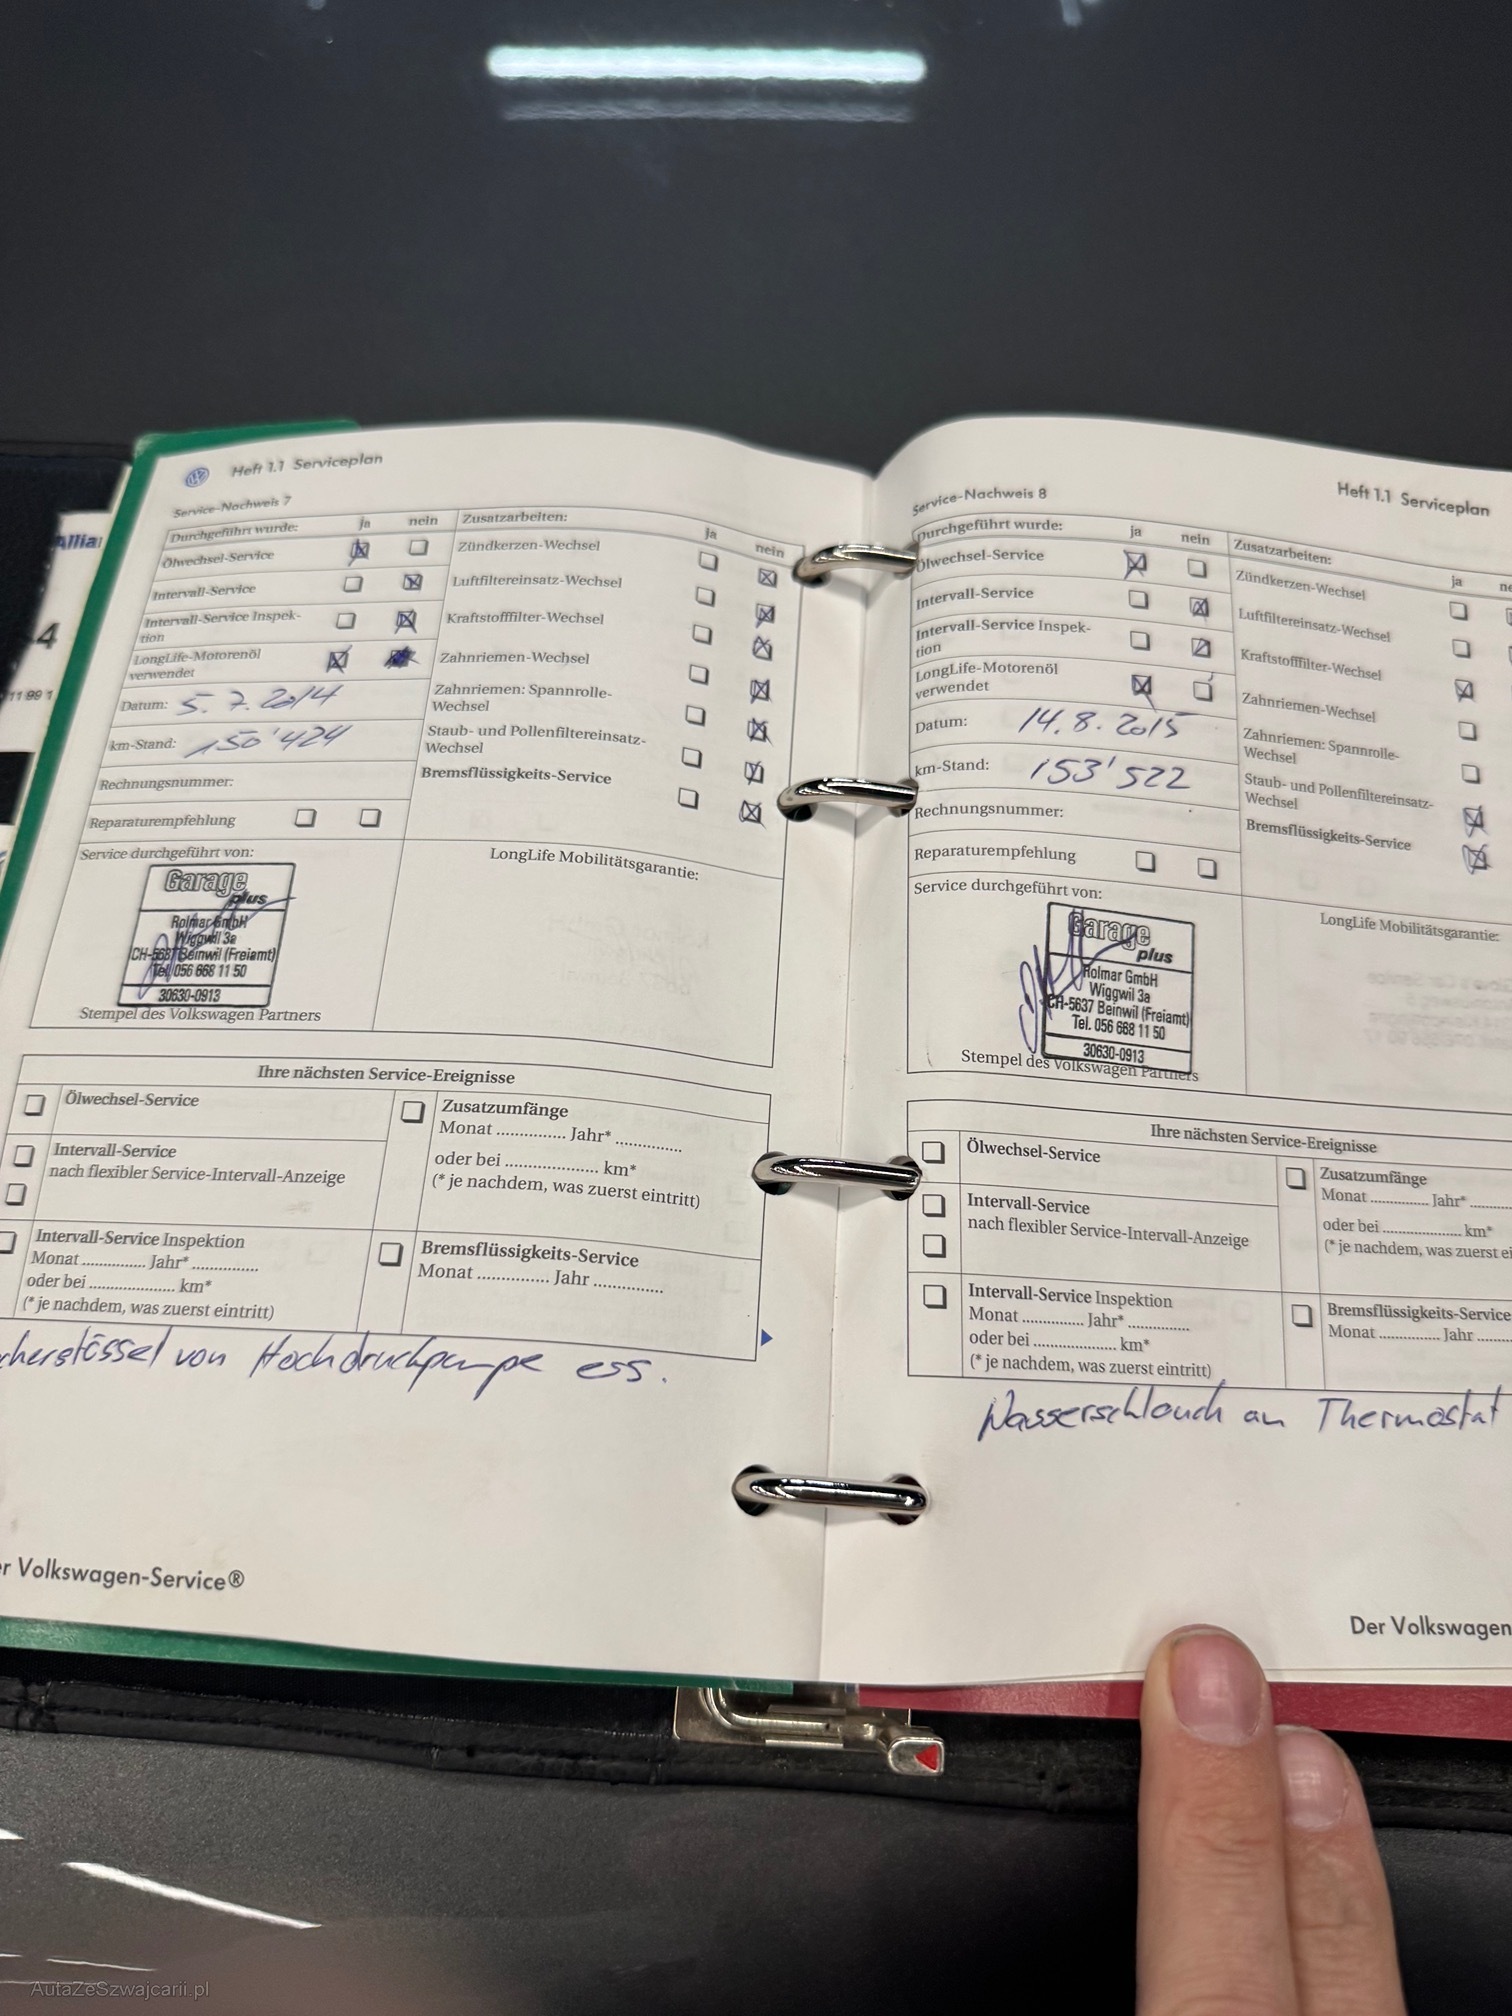 Heft 1.1 Serviceplan
Service-Nachweis 7
Durchgeführt wurde: ja nein
Ölwechsel-Service
Intervall-Service
Intervall-Service Inspek-
tion
LongLife-Motorenöl
verwendet
Datum: 5.7.2014
km-Stand: 150'424
Rechnungsnummer:
Reparaturempfehlung
Service durchgeführt von:
Garage
plus
Rolmar GmbH
Wiggwil 3a
CH-5637 Beinwil (Freiamt)
Tel. 056 668 11 50
30630-0913
Stempel des Volkswagen Partners
Zusatzarbeiten:
ja nein
Zündkerzen-Wechsel
Luftfiltereinsatz-Wechsel
Kraftstofffilter-Wechsel
Zahnriemen-Wechsel
Zahnriemen: Spannrolle-
Wechsel
Staub- und Pollenfiltereinsatz-
Wechsel
Bremsflüssigkeits-Service
LongLife Mobilitätsgarantie:
Ihre nächsten Service-Ereignisse
Ölwechsel-Service
Intervall-Service
nach flexibler Service-Intervall-Anzeige
Intervall-Service Inspektion
Monat .............. Jahr* ..............
oder bei .................. km*
(* je nachdem, was zuerst eintritt)
Zusatzumfänge
Monat .............. Jahr* ..............
oder bei .................. km*
(* je nachdem, was zuerst eintritt)
Bremsflüssigkeits-Service
Monat .............. Jahr ..............
cherstössel von Hochdruckpumpe ess.
er Volkswagen-Service®
Heft 1.1 Serviceplan
Service-Nachweis 8
Durchgeführt wurde: ja nein
Ölwechsel-Service
Intervall-Service
Intervall-Service Inspek-
tion
LongLife-Motorenöl
verwendet
Datum: 14.8.2015
km-Stand: 153'522
Rechnungsnummer:
Reparaturempfehlung
Service durchgeführt von:
Garage
plus
Rolmar GmbH
Wiggwil 3a
CH-5637 Beinwil (Freiamt)
Tel. 056 668 11 50
30630-0913
Stempel des Volkswagen Partners
Zusatzarbeiten:
ja ne
Zündkerzen-Wechsel
Luftfiltereinsatz-Wechsel
Kraftstofffilter-Wechsel
Zahnriemen-Wechsel
Zahnriemen: Spannrolle-
Wechsel
Staub- und Pollenfiltereinsatz-
Wechsel
Bremsflüssigkeits-Service
LongLife Mobilitätsgarantie:
Ihre nächsten Service-Ereignisse
Ölwechsel-Service
Intervall-Service
nach flexibler Service-Intervall-Anzeige
Intervall-Service Inspektion
Monat .............. Jahr* ..............
oder bei .................. km*
(* je nachdem, was zuerst eintritt)
Zusatzumfänge
Monat .............. Jahr* ..........
oder bei .................. km*
(* je nachdem, was zuerst ei
Bremsflüssigkeits-Service
Monat .............. Jahr ......
Wasserschlauch an Thermostat
Der Volkswagen
Allia
4
11 99 1
AutaZeSzwajcarii.pl